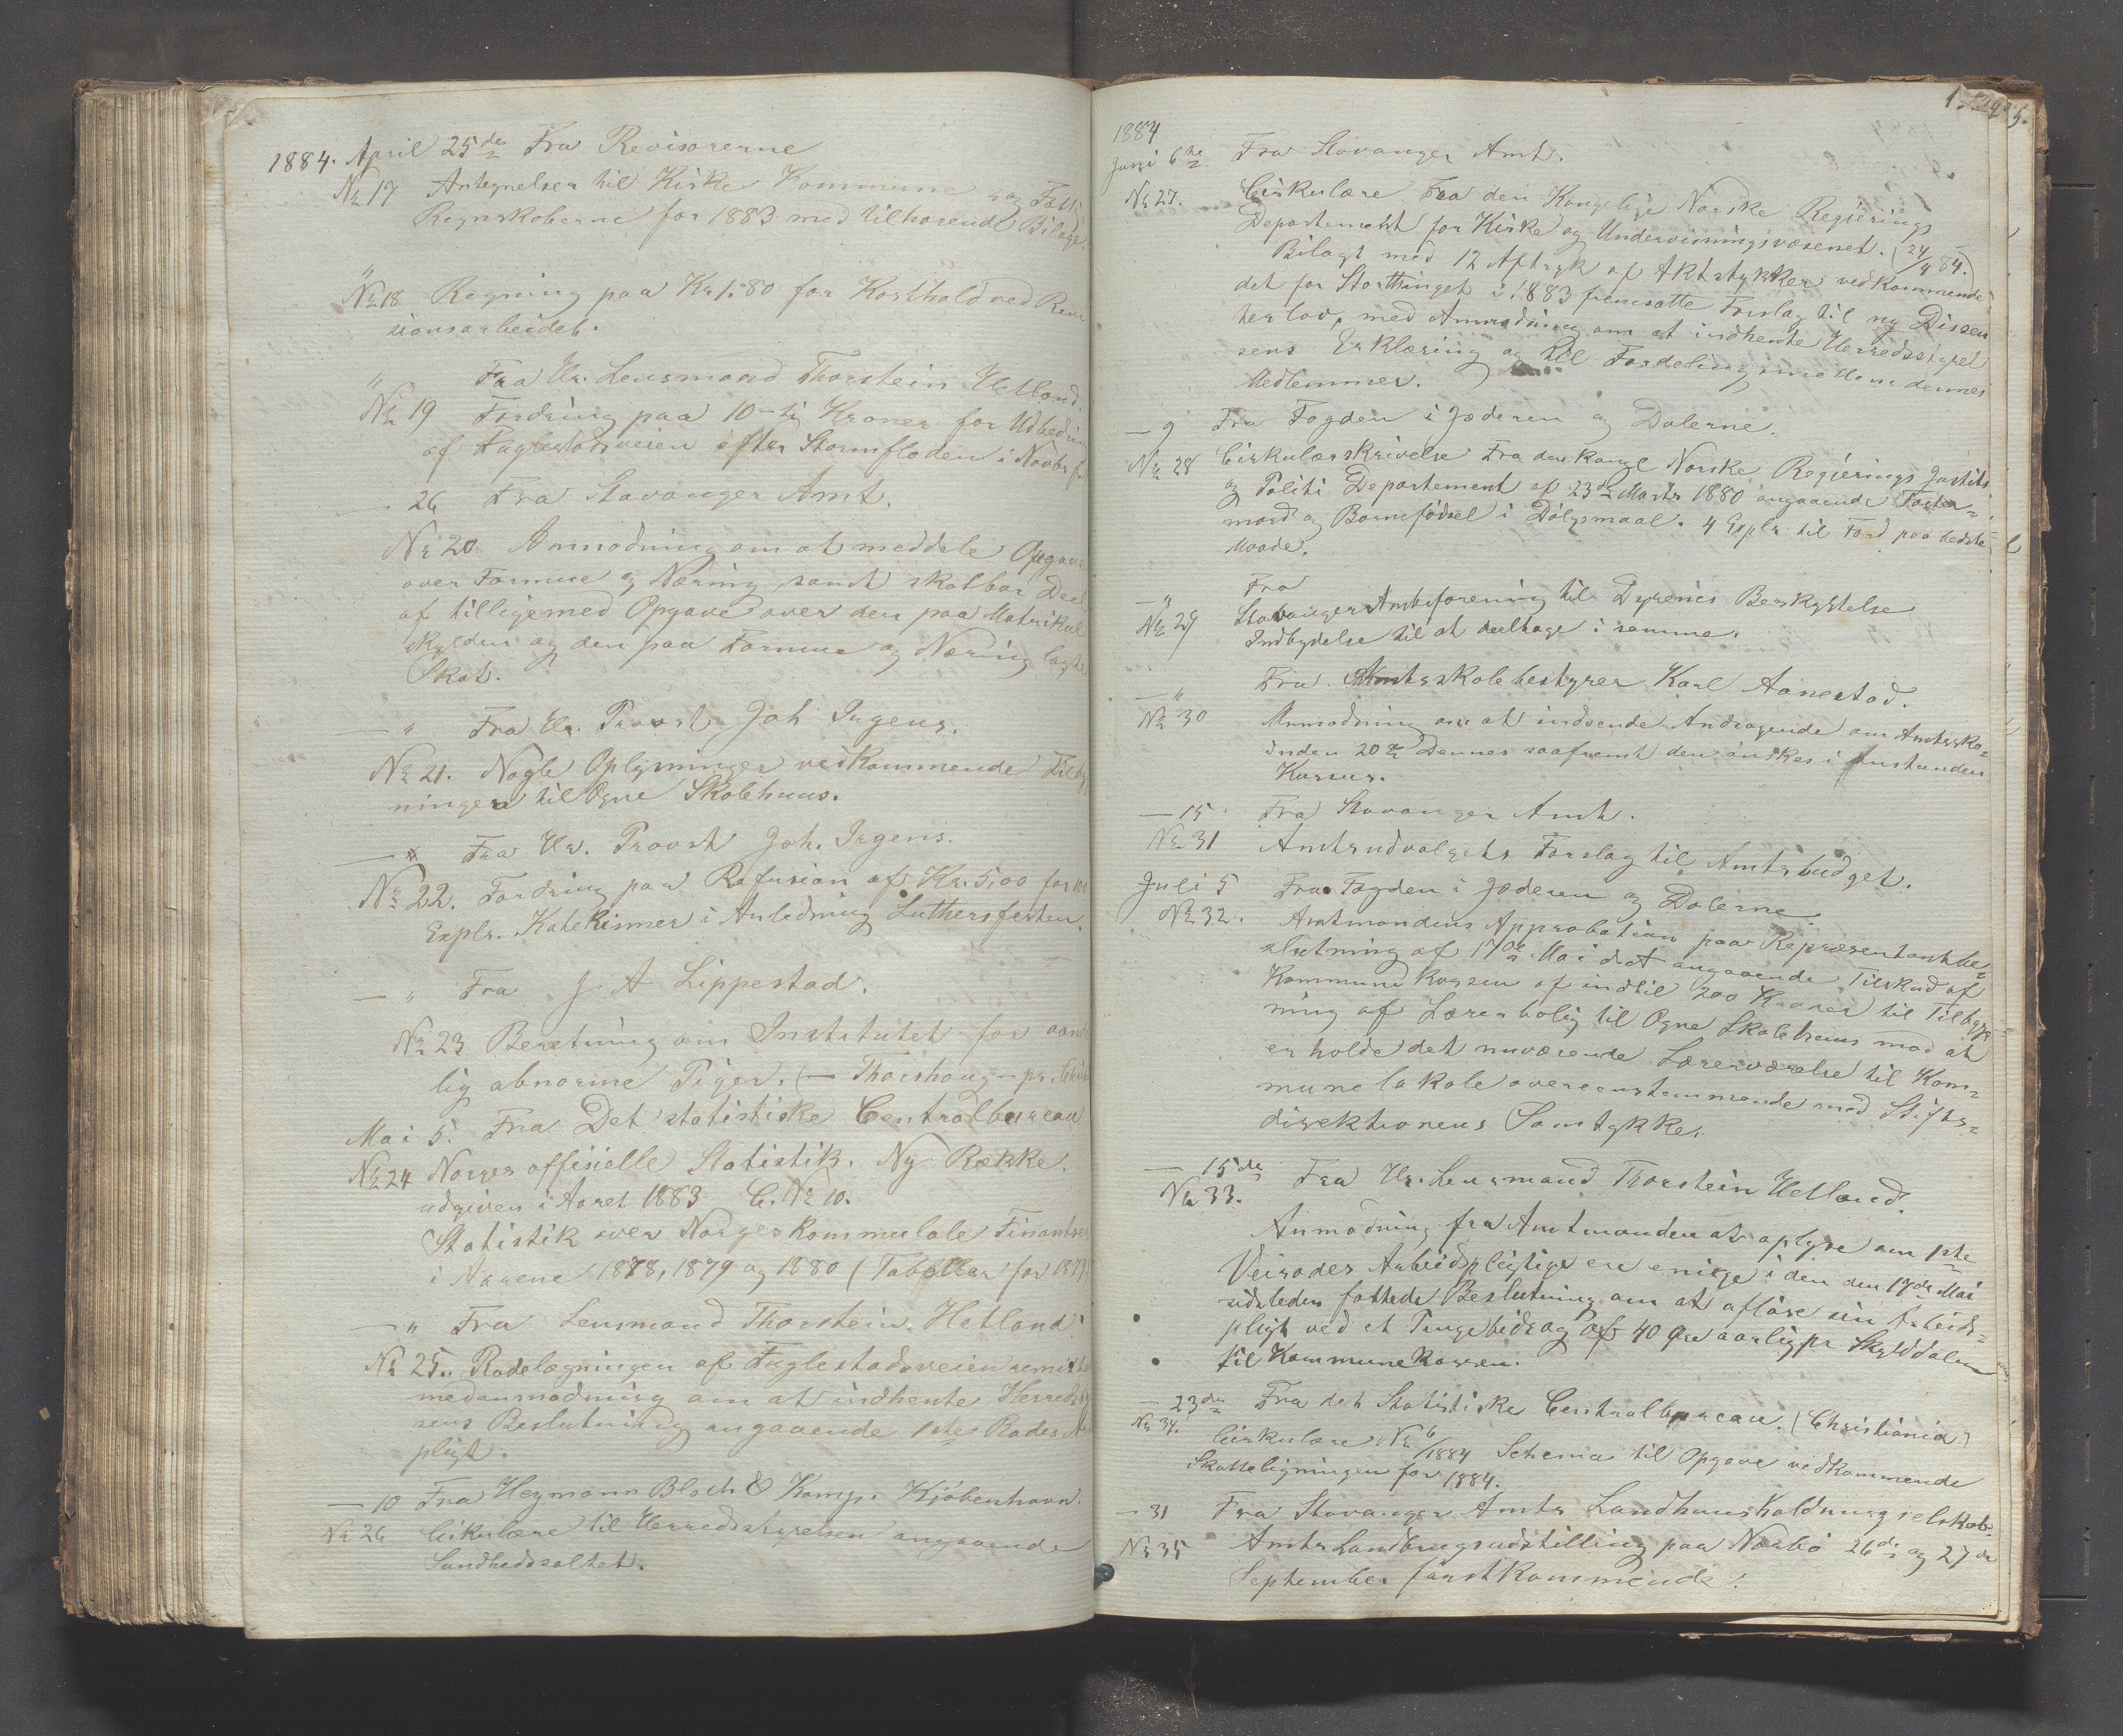 1884. April 25de Fra Revisorerne
No 17 Antegnelser til Kirke Kommune og Fatti
Regnskoberne for 1883 med tilhorende Bilage.
"
No 18 Regning paa Kr 1.80 for Kosthold ved Revi
sionsarbeidet.
" Fra Hr. Lensmand Thorstein Hetland.
No 19 Fordring paa 10-ti Kroner for Udbedrin
af Fuglestadveien efter Stormfloden i Novbr f
— 26 Fra Stavanger Amt.
No 20 Anmodning om at meddele Opgave
over Formue og Næring samt skatbar Deel
af tilligemed Opgave over den paa Matrikul
skylden og den paa Formue og Næring lagte
Skat.
— " Fra Hr. Provst Joh Irgens.
No 21. Nogle Oplysninger vedkommende Tilby
ningen til Ogne Skolehuus.
— " Fra Hr. Provst Joh. Irgens.
No 22. Fordring paa Refusion af Kr. 5,00 for 100
Expls. Katekismer i Anledning Luthersfesten.
— " Fra J. A Lippestad.
No 23 Beretning om Institutet for aand
lig abnorme Piger. (— Thorshaug — pr. Chri
Mai 5. Fra Det statistiske Centralbureau
No 24 Norges officielle Statistik. Ny Række.
udgiven i Aaret 1883 C. No 10.
Statistik over Norges kommunale Finantser
i Aarene 1878, 1879 og 1880 (Tabeller for 1879
— " Fra Lensmand Thorstein Hetland.
No 25. Rodelægningen af Fuglestadsveien remitt
med anmodning om at indhente Herredsty
sens Beslutning angaaende 1ste Rodes A
pligt.
— 10 Fra Heymann Bloch & Komp. Kjöbenhavn.
No 26 Cirkulære til Herredsstyrelsen angaaende
Sundhedssaltet.
1884
Juni 6te Fra Stavanger Amt.
No 27. Cirkulære Fra den Kongelige Norske Regjerings
Departement for Kirke og Undervisningsvæsenet. (24/4 84.)
Bilagt med 12 Aftryk af Aktstykker vedkommende
det for Storthinget i 1883 fremsatte Forslag til ny Dissen
terlov, med Anmodning om at indhente Herredsstyrel
sens Erklæring og til Fordeling imellem dennes
Medlemmer.
— 9 Fra Fogden i Jæderen og Dalerne.
No 28 Cirkulærskrivelse Fra den Kongl Norske Regjerings Justits
og Politi Departement af 23de Marts 1880 angaaende Foster=
mord og Barnefödsel i Dölgsmaal. 4 Explr til Ford paa bedste
Maade.
— " Fra
No 29 Stavanger Amtsforening til Dyrenes Beskyttelse
Indbydelse til at deeltage i samme.
— " Fra Amtsskolebestyrer Karl Aanestad.
No 30 Anmodning om at indsende Andragende om Amtssko=
inden 20de Dennes saafremt den önskes i Anstanden
Kursus.
— 15 Fra Stavanger Amt.
No 31 Amtsudvalgets Forslag til Amtsbudget.
Juli 5 Fra Fogden i Jæderen og Dalerne.
No 32. Amtmandens Approbation paa Repræsentantbe=
slutning af 17de Mai d. A angaaende Tilskud af
Kommunekassen af indtil 200 Kroner til Tilbyg=
ning af Lærerbolig til Ogne Skolehuus mod at
erholde det nuværende Lærerværelse til Kom=
munelokale overensstemmende med Stifts=
direktionens Samtykke.
— 15de Fra Hr. Lensmand Thorstein Hetland.
No 33.
Anmodning fra Amtmanden at oplyse om 1ste
Veirodes Arbeidspligtige ere enige i den den 17de Mai
sidstleden fattede Beslutning om at aflöse sin Arbeids=
pligt ved et Pengebidrag af 40 Öre aarlig pr Skylddaler
til Kommunekassen.
— 23de Fra det Statistiske Centralbureau. (Christiania)
No 34. Cirkulære No 6/1884 Schema til Opgave vedkommende
Skatteligningen for 1884.
— 31 Fra Stavanger Amts Landhuusholdningselskab.
No 35 Amts Landbrugsudstilling paa Nærbö 26de og 27de
September förstkommende.